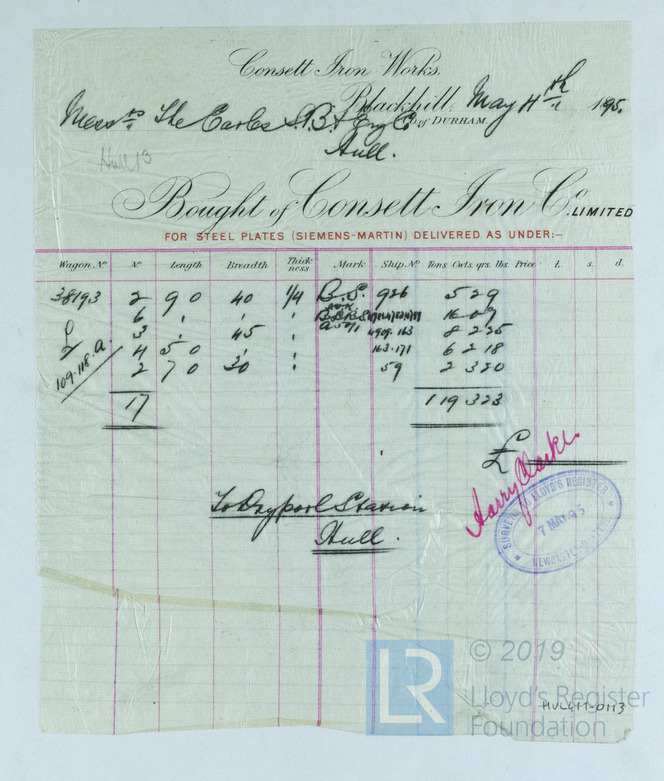 Consett Iron Works.
Blackhill, May 4th 1895.
Co. of DURHAM.
Messrs The Earles S.B. & Eng Co
Hull.
Hull 13
Bought of Consett Iron Co. LIMITED
FOR STEEL PLATES (SIEMENS-MARTIN) DELIVERED AS UNDER:—
Wagon No No Length Breadth Thickness Mark Ship No Tons Cwts. qrs. lbs. Price £. s. d.
38193 2 9 0 40 1/4 B.S. 926 5 2 9
6 " " " B.S. 16 0 7
3 " 45 " 4909.163 8 2 25
109.118.a 4 5 0 " " 163.171 6 2 18
2 7 0 30 " 59 2 3 20
17 1 19 3 23
£
Harry Clarke.
To Drypool Station
Hull.
SURVEYOR LLOYD'S REGISTER
7 MAY 95
NEWCASTLE
LR
© 2019
Lloyd's Register
Foundation
HUL411-0113